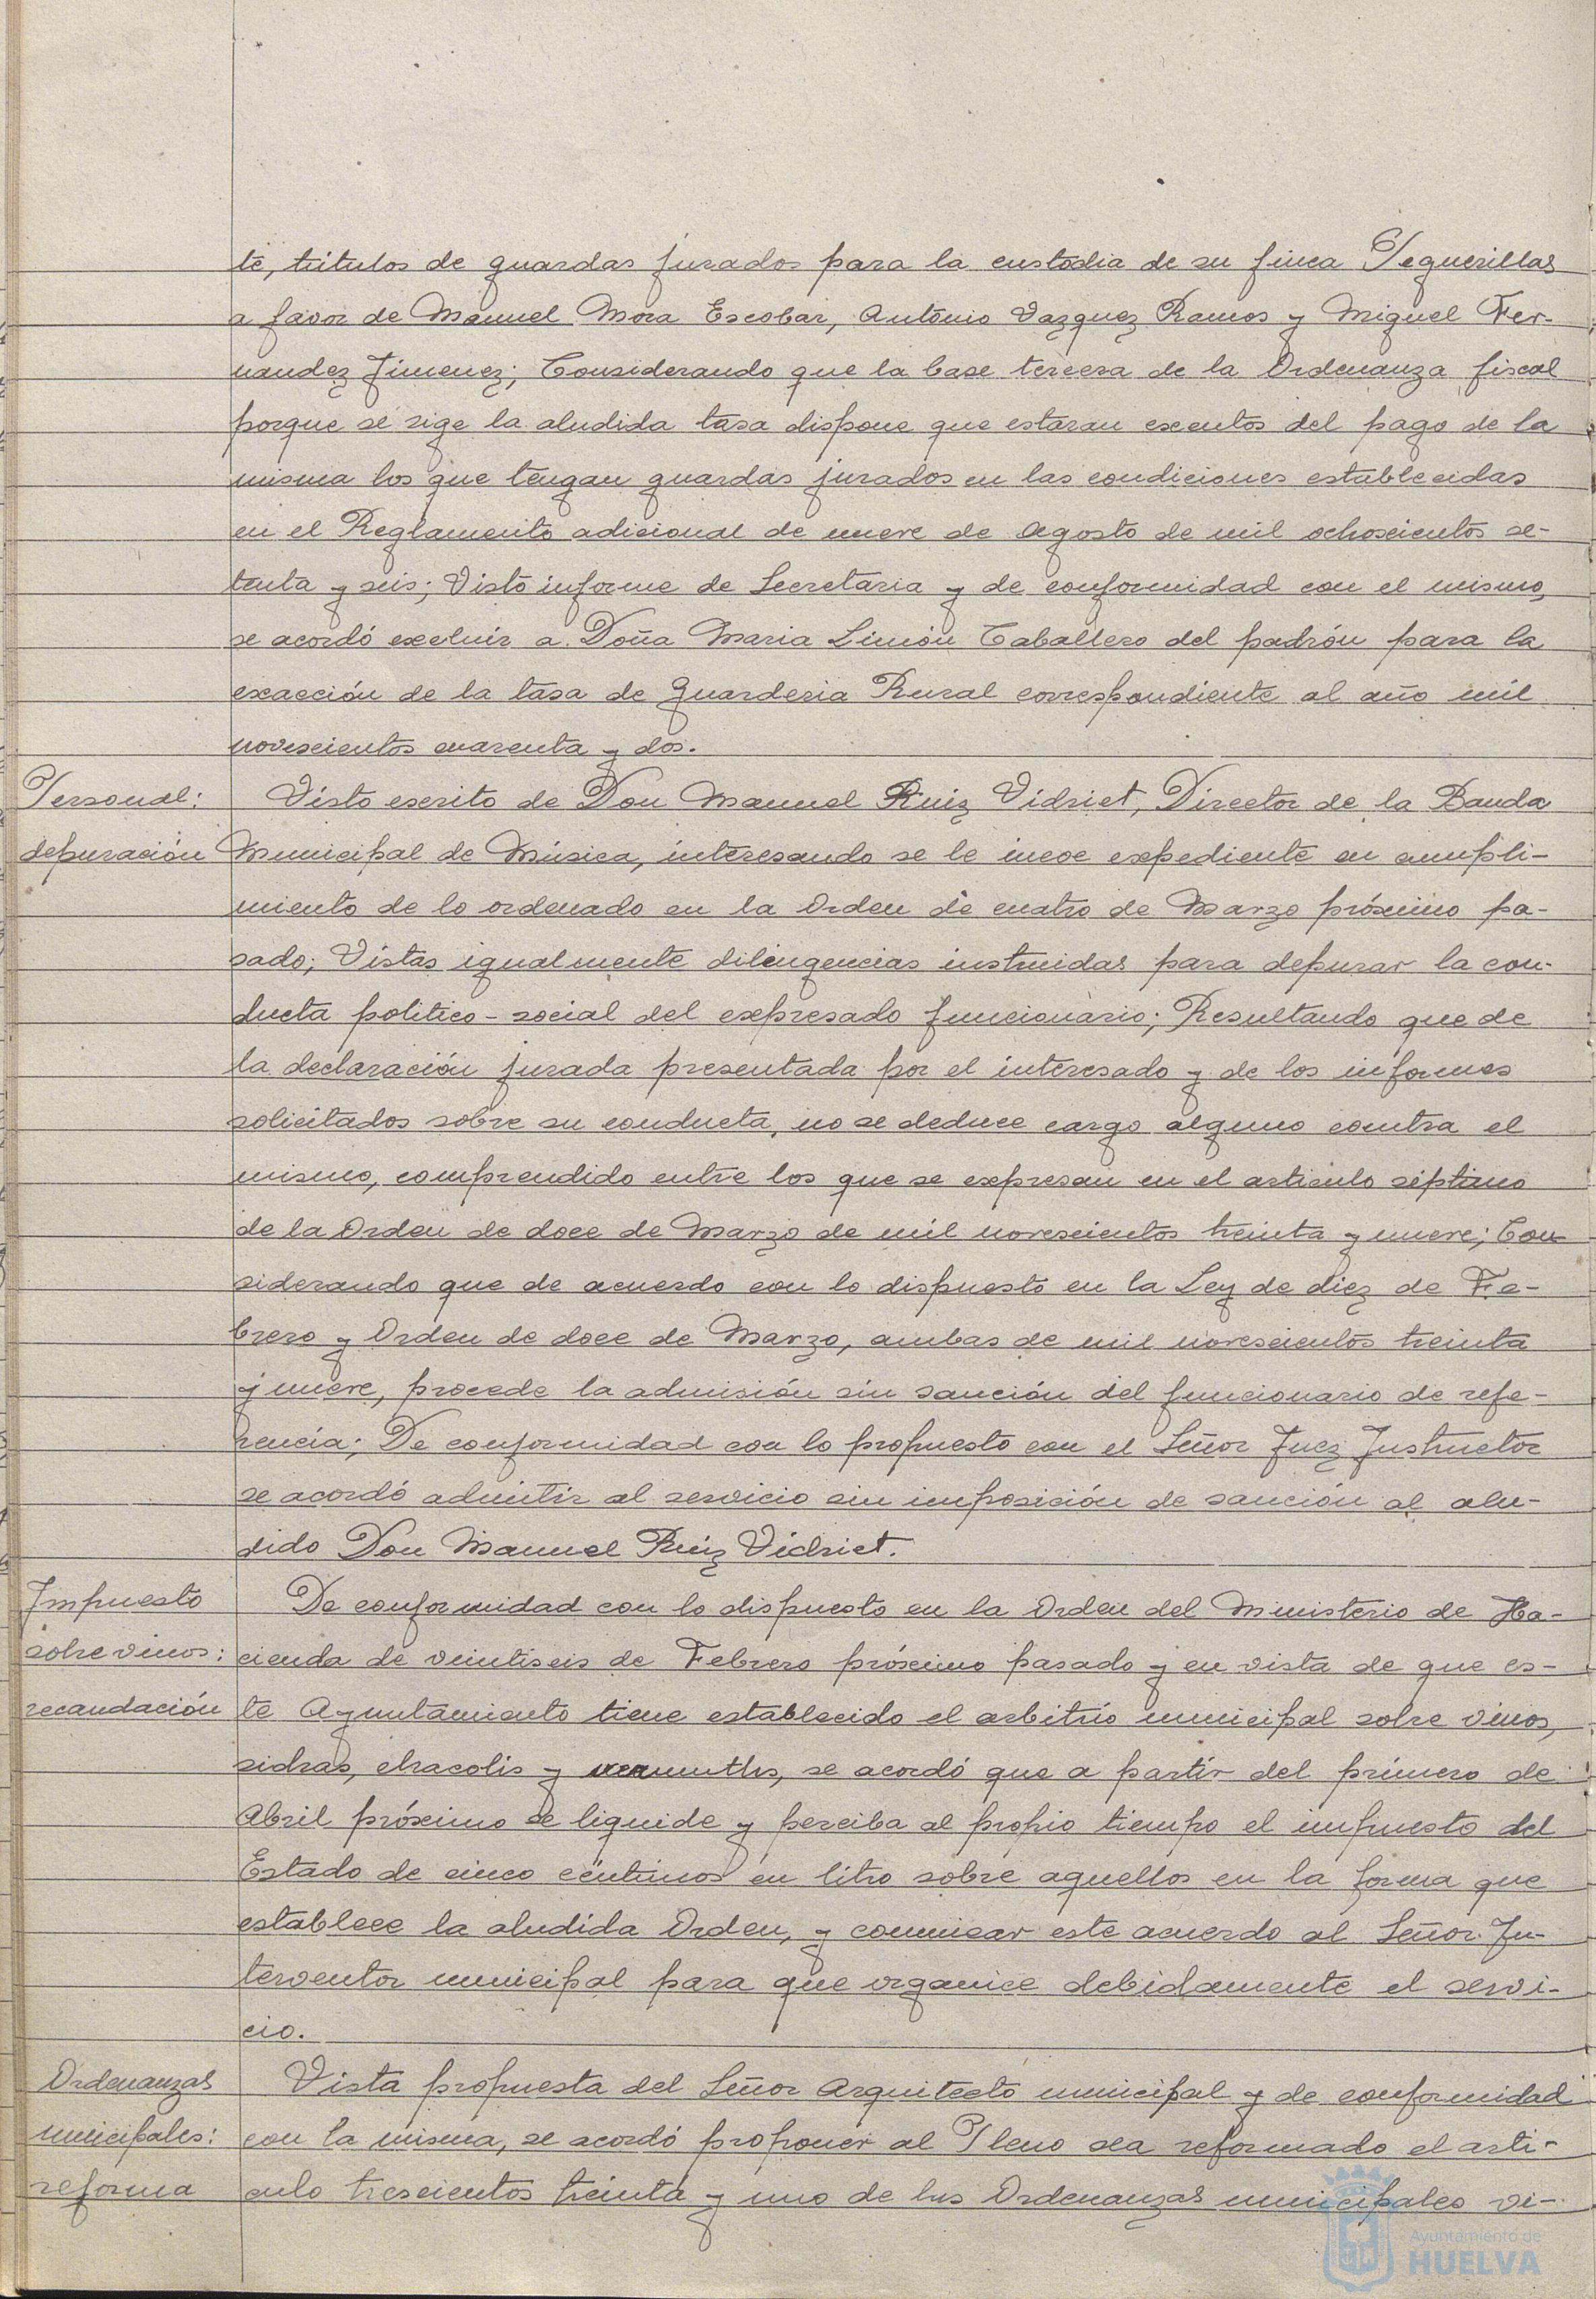 te, títulos de guardas jurados para la custodia de su finca Peguerillas
a favor de Manuel Mora Escobar, Antonio Vazquez Ramos y Miguel Fer-
nandez Jimenez; Considerando que la base tercera de la Ordenanza fiscal
porque se rige la aludida tasa dispone que estaran exentos del pago de la
misma los que tengan guardas jurados en las condiciones establecidas
en el Reglamento adicional de nueve de agosto de mil ochoscientos se-
tenta y seis; Visto informe de Secretaria y de conformidad con el mismo,
se acordó excluir a Doña Maria Limón Caballero del padrón para la
exacción de la tasa de Guarderia Rural correspondiente al año mil
novescientos cuarenta y dos.
Personal:
depuración
Visto escrito de Don Manuel Ruiz Vidriet, Director de la Banda
Municipal de Música, interesando se le incoe expediente en cumpli-
miento de lo ordenado en la Orden de cuatro de Marzo próximo pa-
sado; Vistas igualmente dilingencias instruidas para depurar la con-
ducta politico-social del expresado funcionario; Resultando que de
la declaración jurada presentada por el interesado y de los informes
solicitados sobre su conducta, no se deduce cargo alguno contra el
mismo, comprendido entre los que se expresan en el articulo séptimo
de la Orden de doce de Marzo de mil novescientos treinta y nueve; Con-
siderando que de acuerdo con lo dispuesto en la Ley de diez de Fe-
brero y Orden de doce de Marzo, ambas de mil novescientos treinta
y nueve, procede la admisión sin sanción del funcionario de refe-
rencia; De conformidad con lo propuesto con el Señor Juez Instructor
se acordó admitir al servicio sin imposición de sanción al alu-
dido Don Manuel Ruiz Vidriet.
Impuesto
sobre vinos:
recaudación
De conformidad con lo dispuesto en la Orden del Ministerio de Ha-
cienda de veintiseis de Febrero próximo pasado y en vista de que es-
te Ayuntamiento tiene establecido el arbitrio municipal sobre vinos,
sidras, chacolis y vermuths, se acordó que a partir del primero de
Abril próximo se liquide y perciba al propio tiempo el impuesto del
Estado de cinco céntimos en litro sobre aquellos en la forma que
establece la aludida Orden, y comunicar este acuerdo al Señor In-
terventor municipal para que organice debidamente el servi-
cio.
Ordenanzas
municipales:
reforma
Vista propuesta del Señor Arquitecto municipal y de conformidad
con la misma, se acordó proponer al Pleno sea reformado el arti-
culo trescientos treinta y uno de las Ordenanzas municipales vi-
Ayuntamiento de
HUELVA